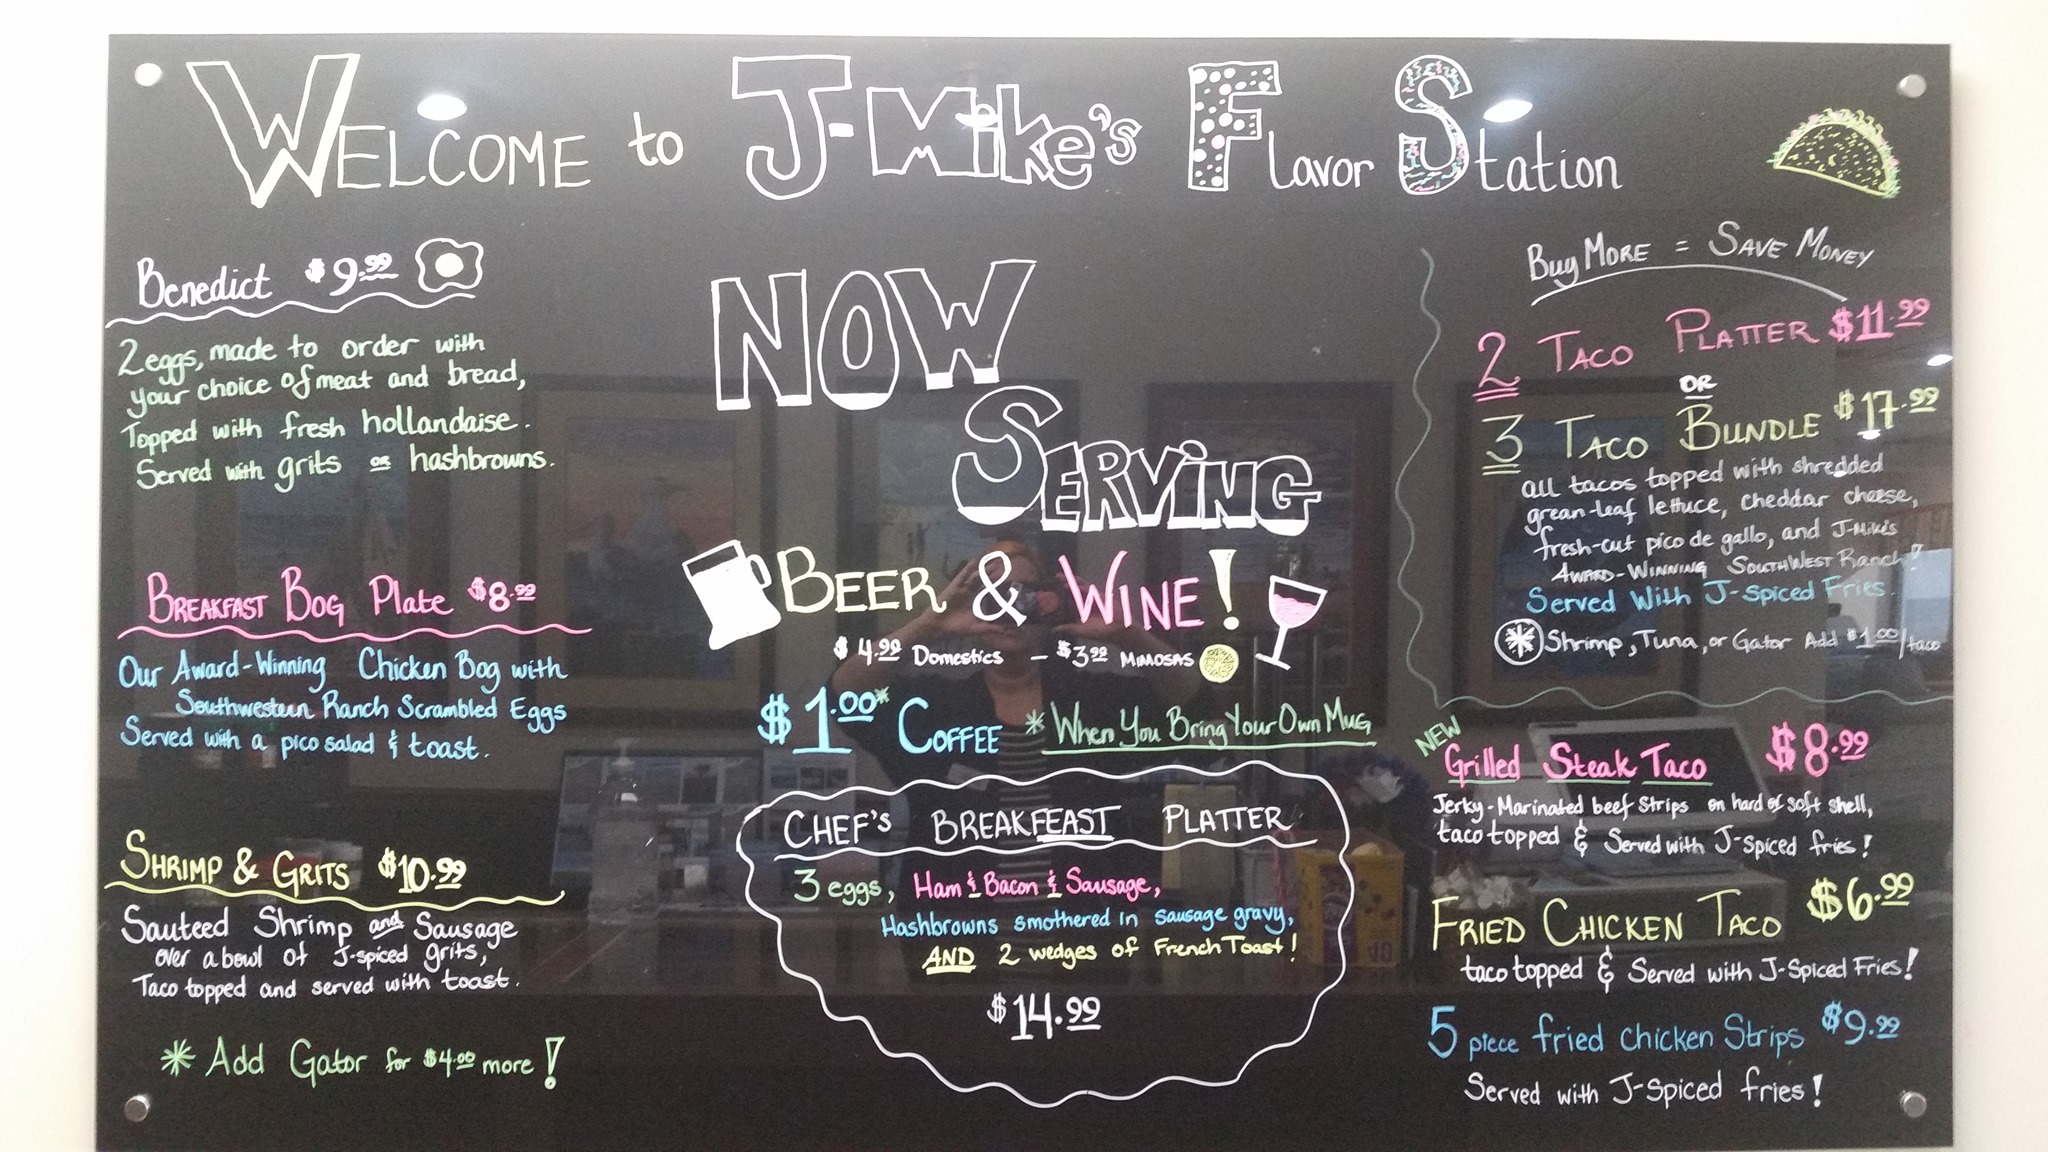 WELCOME to J-Mike's Flavor Station
Benedict $9.99
2 eggs, made to order with
your choice of meat and bread,
Topped with fresh hollandaise.
Served with grits or hashbrowns.
BREAKFAST BOG Plate $8.99
Our Award-Winning Chicken Bog with
Southwestern Ranch Scrambled Eggs
Served with a pico salad & toast.
SHRIMP & GRITS $10.99
Sauteed Shrimp and Sausage
over a bowl of J-spiced grits,
Taco topped and served with toast.
* Add Gator for $4.00 more!
NOW
SERVING
BEER & WINE!
$4.99 Domestics - $3.99 MIMOSAS
$1.00* COFFEE * When You Bring Your Own Mug
CHEF'S BREAKFEAST PLATTER
3 eggs, Ham & Bacon & Sausage,
Hashbrowns smothered in sausage gravy,
AND 2 wedges of French Toast!
$14.99
Buy MORE = SAVE MONEY
2 TACO PLATTER $11.99
OR
3 TACO BUNDLE $17.99
all tacos topped with shredded
grean-leaf lettuce, cheddar cheese,
fresh-cut pico de gallo, and J-Mike's
AWARD-WINNING SOUTHWEST RANCH!
Served With J-Spiced Fries.
* Shrimp, Tuna, or Gator Add $1.00/taco
NEW
Grilled Steak Taco $8.99
Jerky-Marinated beef Strips on hard or soft shell,
taco topped & Served with J-Spiced fries!
FRIED CHICKEN TACO $6.99
taco topped & Served with J-Spiced Fries!
5 piece fried chicken Strips $9.99
Served with J-Spiced fries!